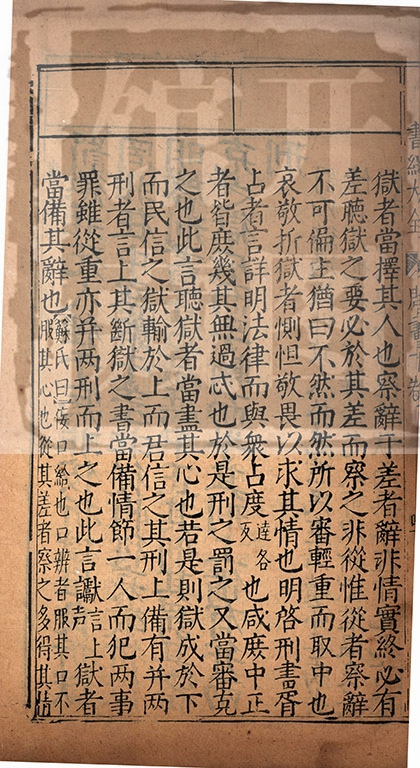 獄者當擇其人也察辭于差者辭非情實終必有
差聽獄之要必於其差而察之非從惟從者察辭
不可偏主猶曰不然而然所以審輕重而取中也
哀敬折獄者惻怛敬畏以求其情也明啓刑書胥
占者言詳明法律而與衆占度達各反也咸庶中正
者皆庶幾其無過忒也於是刑之罰之又當審克
之也此言聽獄者當盡其心也若是則獄成於下
而民信之獄輸於上而君信之其刑上備有并两
刑者言上其斷獄之書當備情節一人而犯两事
罪雖從重亦并两刑而上之也此言讞上聲獄者
當備其辭也蘇氏曰佞口給也口辨者服其口不
服其心也從其差者察之多得其情
書經大全